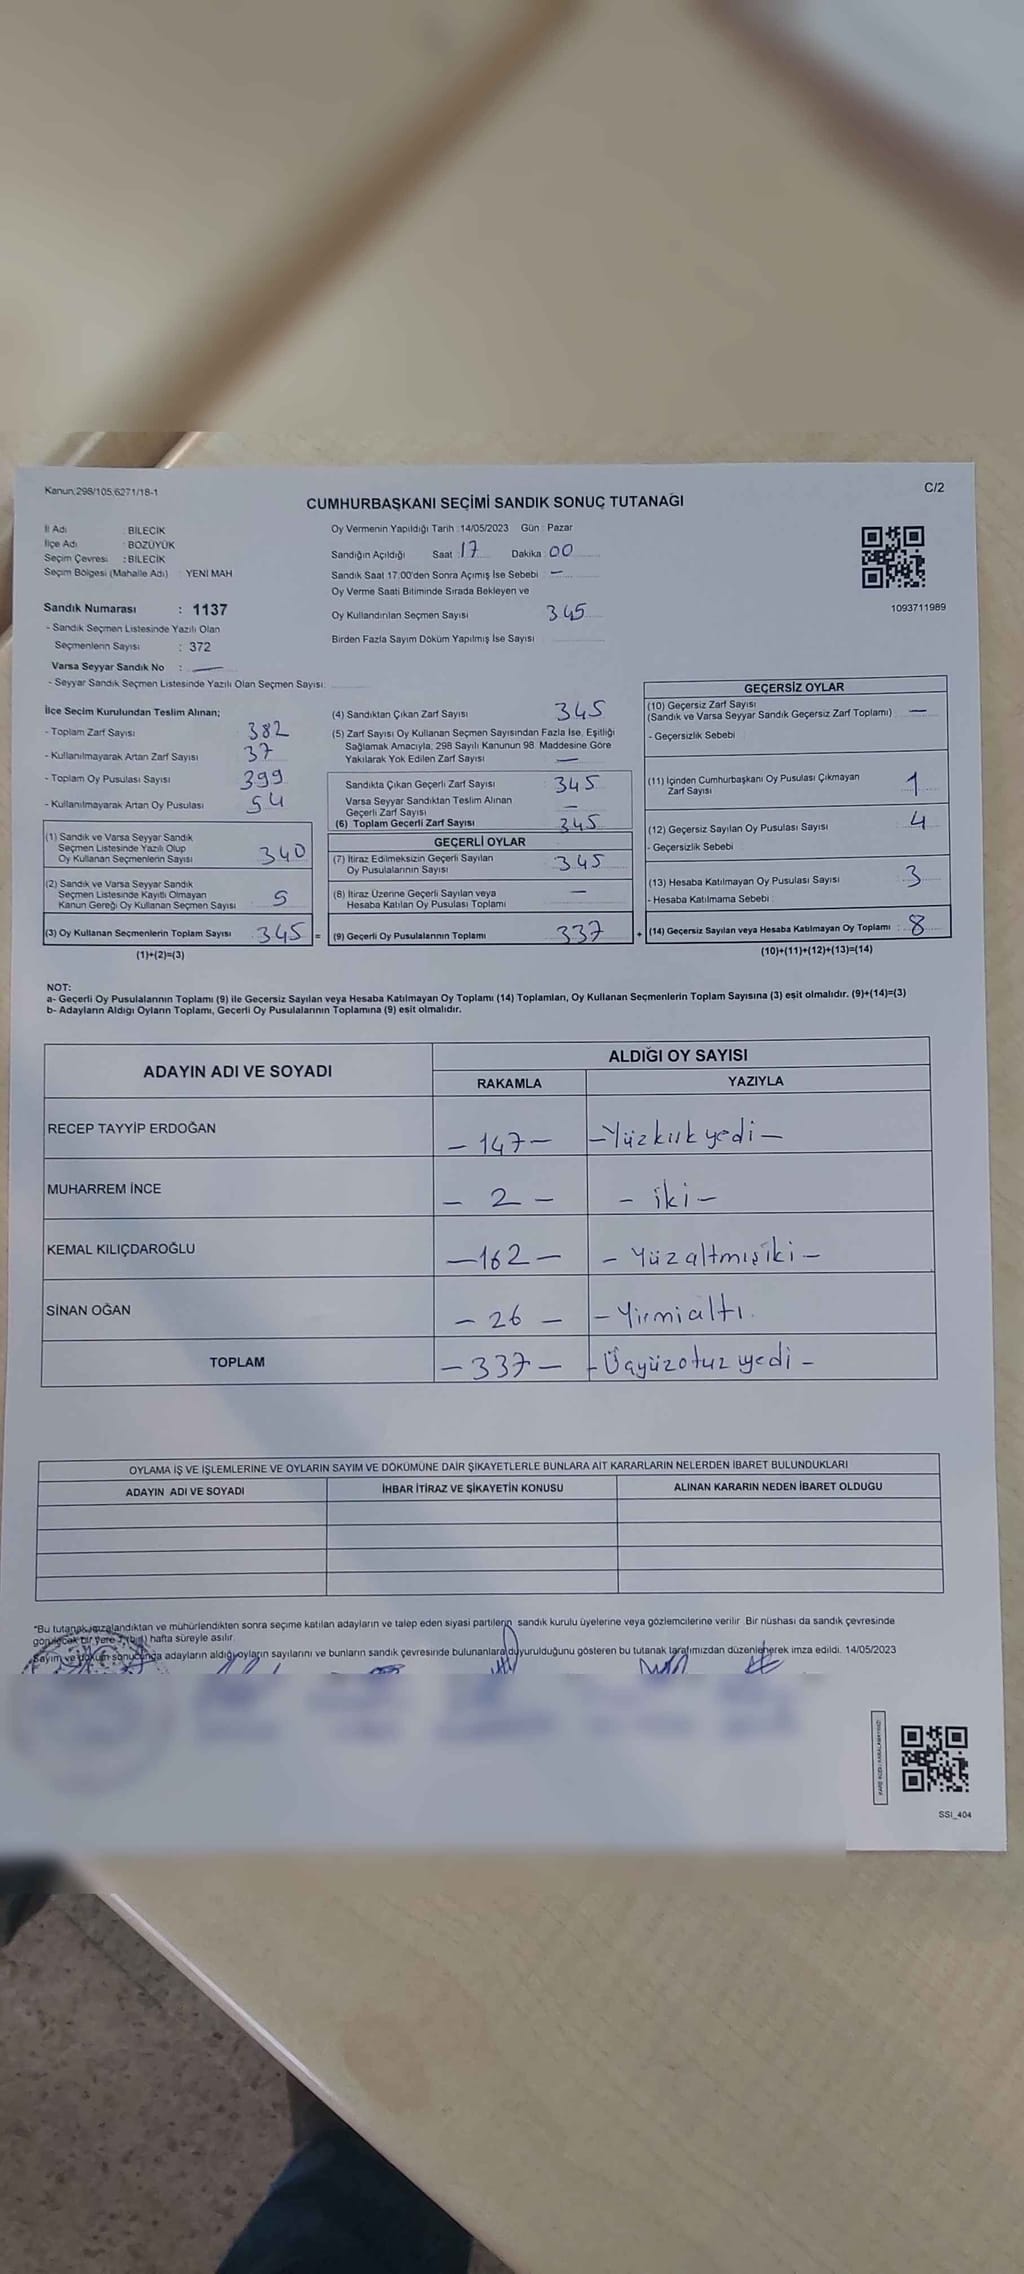 Kanun:298/105,6271/18-1
C/2
CUMHURBAŞKANI SEÇİMİ SANDIK SONUÇ TUTANAĞI
İl Adı : BİLECİK
İlçe Adı : BOZÜYÜK
Seçim Çevresi : BİLECİK
Seçim Bölgesi (Mahalle Adı) : YENİ MAH
Sandık Numarası : 1137
- Sandık Seçmen Listesinde Yazılı Olan
Seçmenlerin Sayısı : 372
Varsa Seyyar Sandık No : —
- Seyyar Sandık Seçmen Listesinde Yazılı Olan Seçmen Sayısı:
Oy Vermenin Yapıldığı Tarih :14/05/2023 Gün : Pazar
Sandığın Açıldığı Saat : 17 Dakika : 00
Sandık Saat 17.00'den Sonra Açımış İse Sebebi : —
Oy Verme Saati Bitiminde Sırada Bekleyen ve
Oy Kullandırılan Seçmen Sayısı 345
Birden Fazla Sayım Döküm Yapılmış İse Sayısı
1093711989
İlce Secim Kurulundan Teslim Alınan;
- Toplam Zarf Sayısı 382
- Kullanılmayarak Artan Zarf Sayısı 37
- Toplam Oy Pusulası Sayısı 399
- Kullanılmayarak Artan Oy Pusulası 54
(1) Sandık ve Varsa Seyyar Sandık
Seçmen Listesinde Yazılı Olup
Oy Kullanan Seçmenlerin Sayısı 340
(2) Sandık ve Varsa Seyyar Sandık
Seçmen Listesinde Kayıtlı Olmayan
Kanun Gereği Oy Kullanan Seçmen Sayısı 5
(3) Oy Kullanan Seçmenlerin Toplam Sayısı 345 =
(1)+(2)=(3)
(4) Sandıktan Çıkan Zarf Sayısı 345
(5) Zarf Sayısı Oy Kullanan Seçmen Sayısından Fazla İse, Eşitliği
Sağlamak Amacıyla, 298 Sayılı Kanunun 98. Maddesine Göre
Yakılarak Yok Edilen Zarf Sayısı —
Sandıkta Çıkan Geçerli Zarf Sayısı 345
Varsa Seyyar Sandıktan Teslim Alınan
Geçerli Zarf Sayısı —
(6) Toplam Geçerli Zarf Sayısı 345
GEÇERLİ OYLAR
(7) İtiraz Edilmeksizin Geçerli Sayılan
Oy Pusulalarının Sayısı 345
(8) İtiraz Üzerine Geçerli Sayılan veya
Hesaba Katılan Oy Pusulası Toplamı —
(9) Geçerli Oy Pusulalarının Toplamı 337 +
GEÇERSİZ OYLAR
(10) Geçersiz Zarf Sayısı
(Sandık ve Varsa Seyyar Sandık Geçersiz Zarf Toplamı) —
- Geçersizlik Sebebi
(11) İçinden Cumhurbaşkanı Oy Pusulası Çıkmayan
Zarf Sayısı 1
(12) Geçersiz Sayılan Oy Pusulası Sayısı 4
- Geçersizlik Sebebi
(13) Hesaba Katılmayan Oy Pusulası Sayısı 3
- Hesaba Katılmama Sebebi
(14) Geçersiz Sayılan veya Hesaba Katılmayan Oy Toplamı : 8
(10)+(11)+(12)+(13)=(14)
NOT:
a- Geçerli Oy Pusulalarının Toplamı (9) ile Gecersiz Sayılan veya Hesaba Katılmayan Oy Toplamı (14) Toplamları, Oy Kullanan Seçmenlerin Toplam Sayısına (3) eşit olmalıdır. (9)+(14)=(3)
b- Adayların Aldığı Oyların Toplamı, Geçerli Oy Pusulalarının Toplamına (9) eşit olmalıdır.
ADAYIN ADI VE SOYADI ALDIĞI OY SAYISI
RAKAMLA YAZIYLA
RECEP TAYYİP ERDOĞAN — 147 — — Yüzkırkyedi —
MUHARREM İNCE — 2 — — iki —
KEMAL KILIÇDAROĞLU — 162 — — Yüzaltmışiki —
SİNAN OĞAN — 26 — — Yirmialtı.
TOPLAM — 337 — — Üçyüzotuzyedi —
OYLAMA İŞ VE İŞLEMLERİNE VE OYLARIN SAYIM VE DÖKÜMÜNE DAİR ŞİKAYETLERLE BUNLARA AİT KARARLARIN NELERDEN İBARET BULUNDUKLARI
ADAYIN ADI VE SOYADI İHBAR İTİRAZ VE ŞİKAYETİN KONUSU ALINAN KARARIN NEDEN İBARET OLDUĞU
"Bu tutanak imzalandıktan ve mühürlendikten sonra seçime katılan adayların ve talep eden siyasi partilerin sandık kurulu üyelerine veya gözlemcilerine verilir. Bir nüshası da sandık çevresinde
görülecek bir yere 1 (bir) hafta süreyle asılır.
Sayım ve döküm sonucunda adayların aldığı oyların sayılarını ve bunların sandık çevresinde bulunanlara duyurulduğunu gösteren bu tutanak tarafımızdan düzenlenerek imza edildi. 14/05/2023
SSI_404